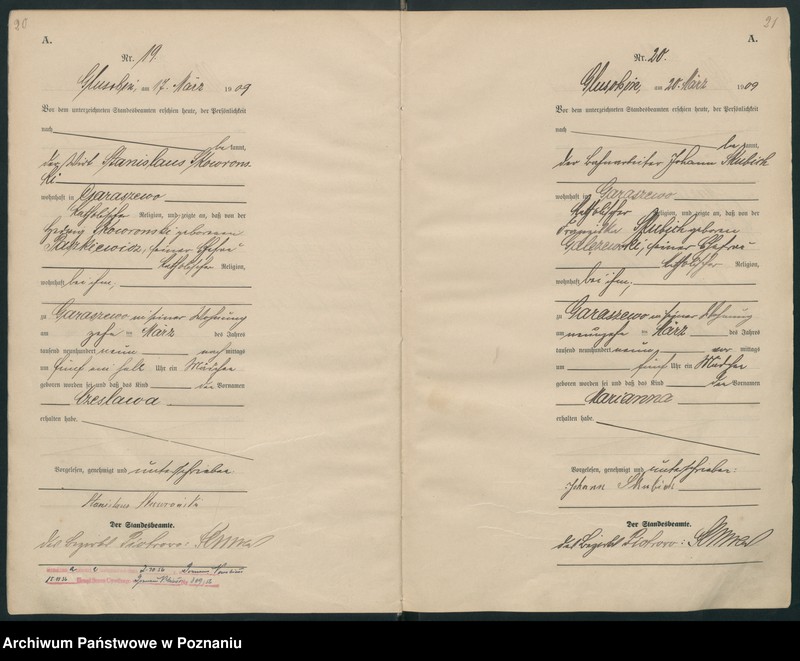 20
A.
Nr. 19.
Glusohin, am 17. März 1909
Vor dem unterzeichneten Standesbeamten erschien heute, der Persönlichkeit
nach
be kannt,
der Wirt Stanislaus Skowrons
ki
wohnhaft in Garaszewo
katholischer Religion, und zeigte an, daß von der
Hedwig Skowronski geborenen
seiner Ehefrau
katholischer Religion,
wohnhaft bei ihm,
zu Garaszewo in seiner Wohnung
am zehn ten März des Jahres
tausend neunhundert neun nach mittags
um fünf ein halb Uhr ein Mädchen
geboren worden sei und daß das Kind den Vornamen
Czeslawa
erhalten habe.
Vorgelesen, genehmigt und unterschrieben
Stanislaus
Der Standesbeamte.
des Bezirks Piotrowo:
21
A.
Nr. 20.
Glusohin, am 20. März 1909
Vor dem unterzeichneten Standesbeamten erschien heute, der Persönlichkeit
nach
be kannt,
der Bahnarbeiter Johann Skubich
wohnhaft in Garaszewo
katholischer Religion, und zeigte an, daß von der
Franziska Skubich geboren
seiner Ehefrau
katholischer Religion,
wohnhaft bei ihm,
zu Garaszewo in seiner Wohnung
am neunzehn ten März des Jahres
tausend neunhundert neun vor mittags
um fünf Uhr ein Mädchen
geboren worden sei und daß das Kind den Vornamen
Marianna
erhalten habe.
Vorgelesen, genehmigt und unterschrieben:
Johann
Der Standesbeamte.
des Bezirks Piotrowo:
Archiwum Państwowe w Poznaniu